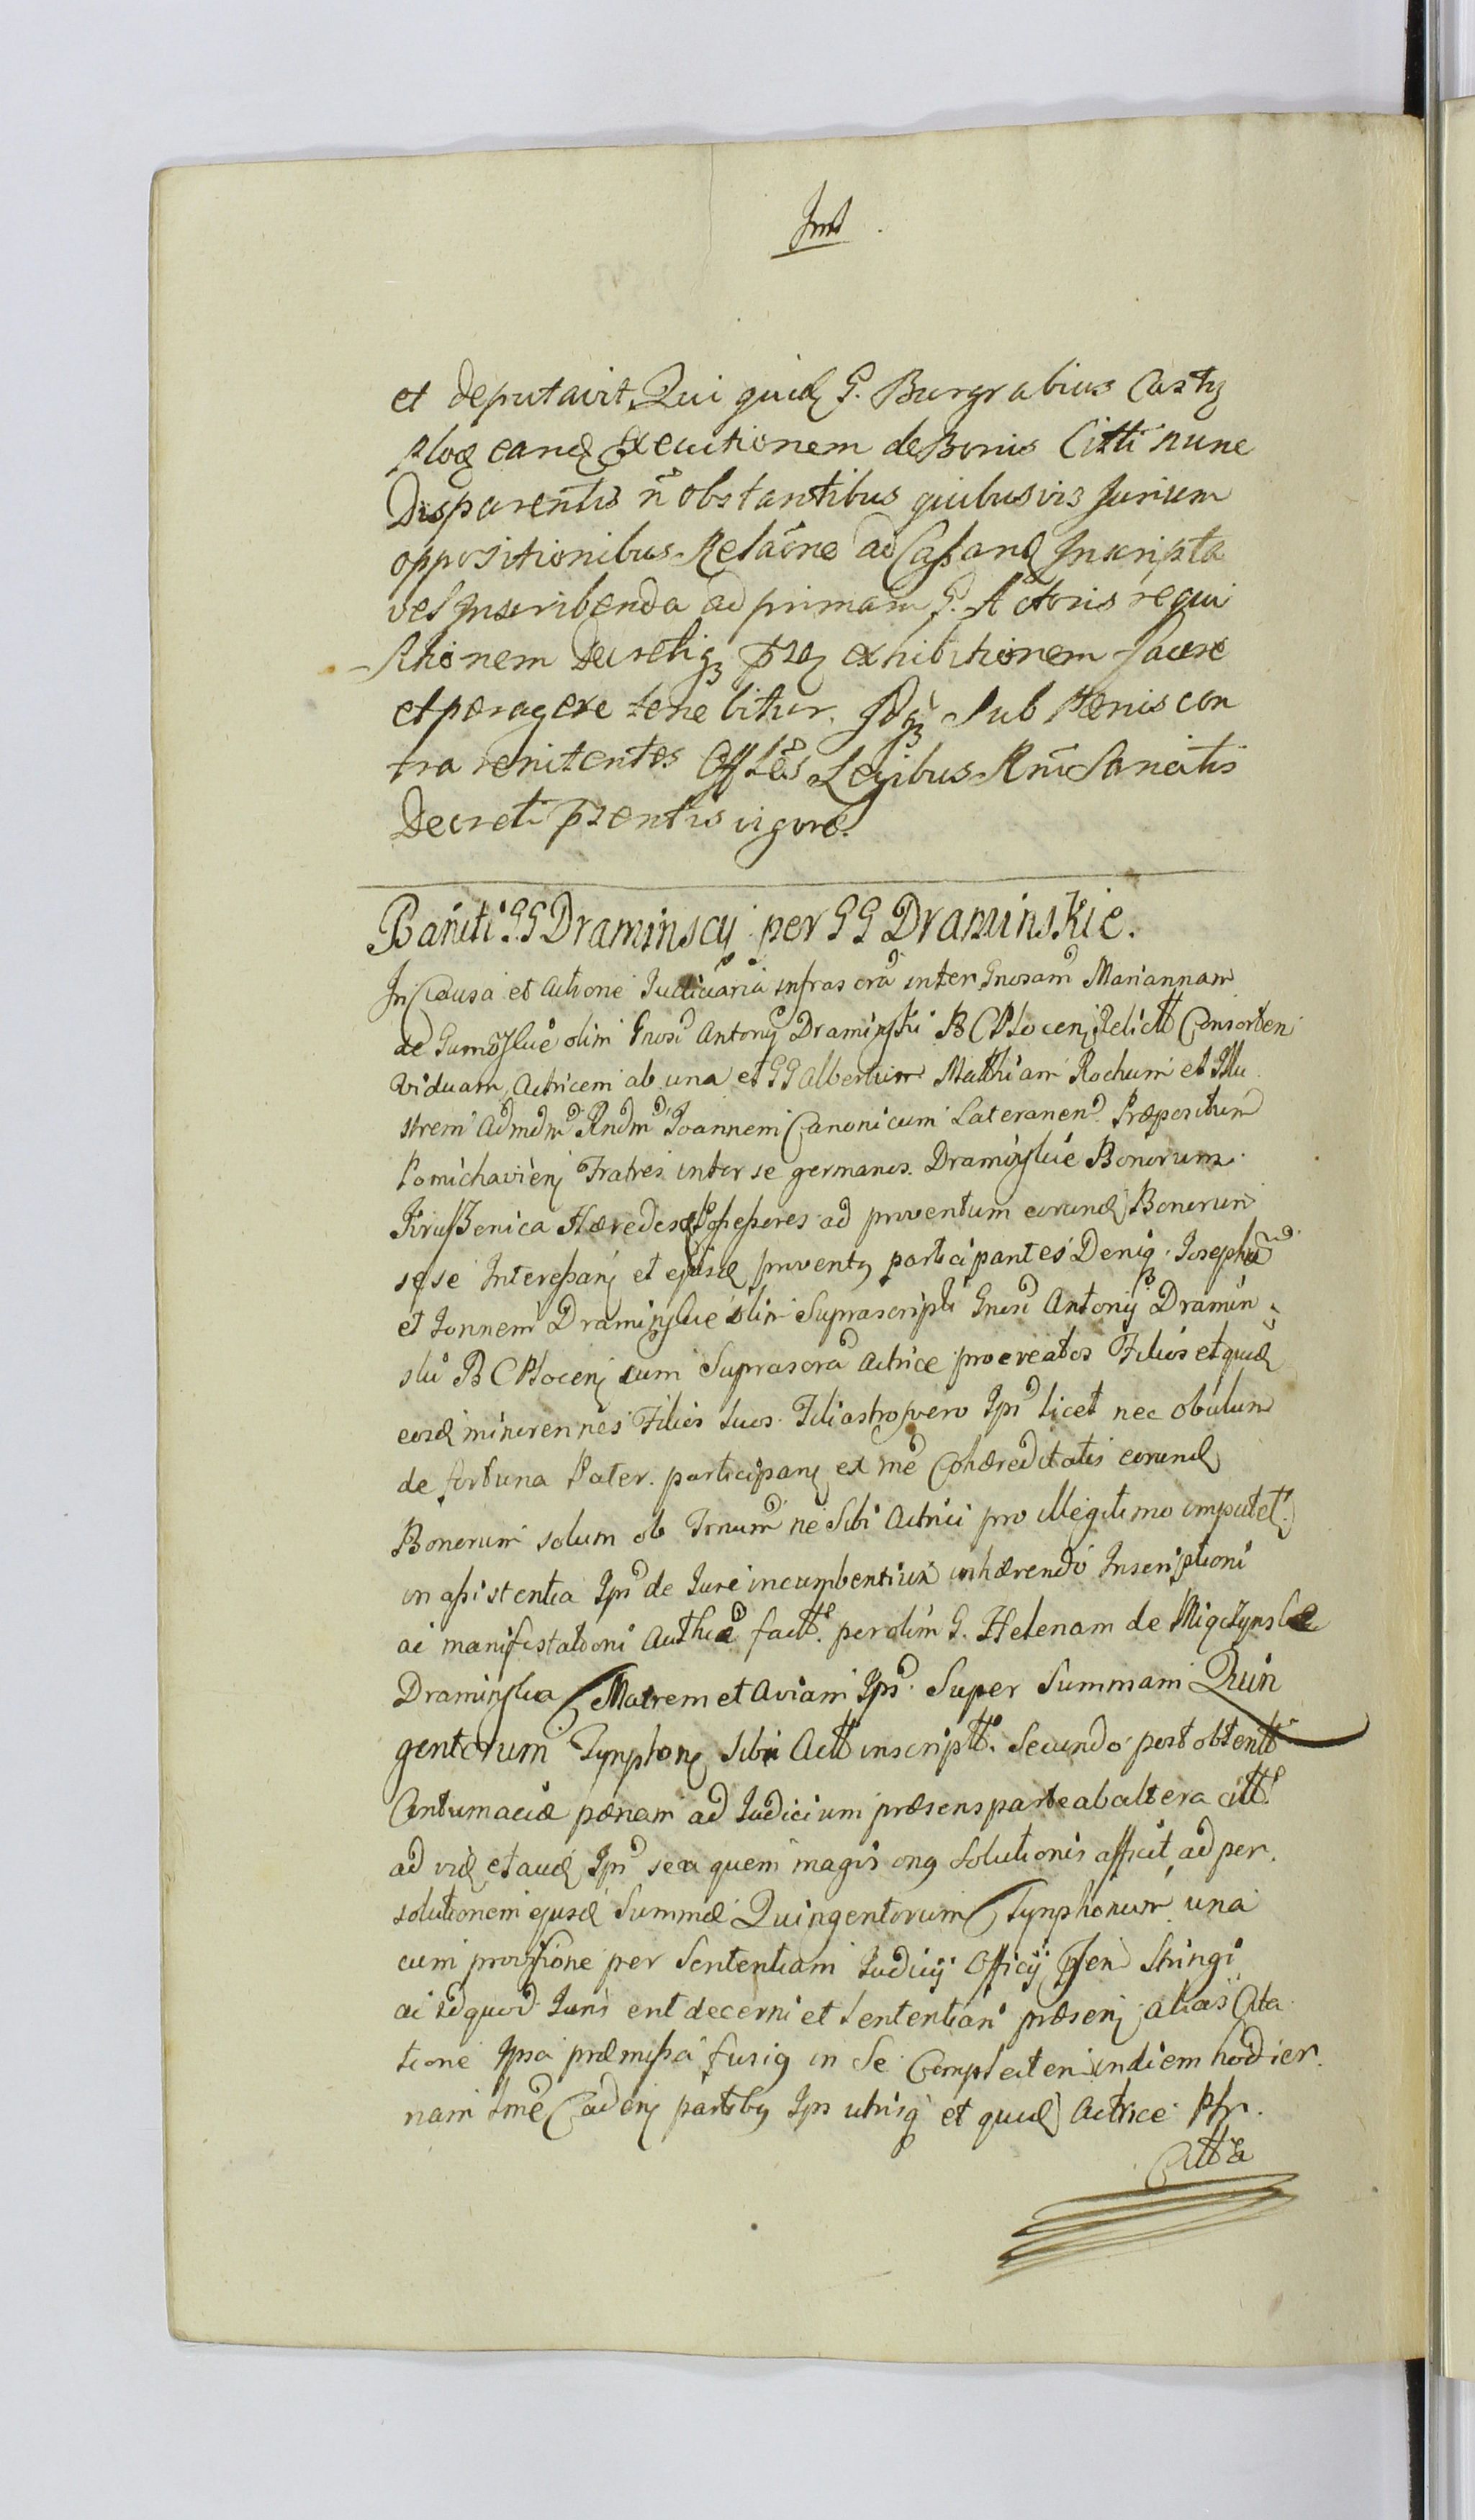 et deputavit, Qui quid G. Burgrabius Castr
ploc eand Executionem de Bonis Citti nunc
Disparentis n obstantibus quibusvis Jurium
oppositionibus Relaone ad Cassand Inscripta
vel Inscribenda ad primam G. Actoris requi
sitionem Decretiq prs exhibitionem facere
et peragere tenebitur. Idq Sub Pœnis con
tra renitentes Offles Legibus Rni Sancitis
Decreti przentis vigore.
Baniti GG Draminscy per GG Draminskie.
In Causa et Actione Judiciaria infrascra inter Gnosam Mariannam
de olim Gnosi Antonij Draminski B C Plocen Relict Consorten
Viduam, Actricem ab una et GG Albertum Mathiam Rochum et Illu
strem Admdm Rndm Joannem Canonicum Lateranen Præpositum
Pomichavien Fratres inter se germanos Draminskie Bonorum
Hæredes Possessores ad proventum eorund Bonorum
se se Interessan et ejusd provent participantes Deniq Joseph
et Jonnem Draminskie olim Suprascripti Gnosi Antonij Dramin
ski B C Plocen cum Suprascra Actrice procreatos Filios et quid
eosd minorennes Filios suos Filiastros vero Ips licet nec obulum
de fortuna Pater. participan ex me Cohæreditatis eorund
Bonorum solum ob ne Sibi Actrici pro illegitimo imputet
in assistentia Ips de Jure incumbentium inhærendo Inscriptioni
ac manifestationi factt. per olim G. Helenam de
Draminska Matrem et Aviam Ips. Super Summam Quin
gentorum Tynphon Sibi Actt inscriptt. Secundo post obtentt
Contumaciæ pœnam ad Judicium præsens parte ab altera citt
ad vid et aud Ips se a quem magis solutionis afficit, ad per
solutionem ejusd Summæ Quingentorum Tynphonum una
cum provisione per Sententiam Judicij Officij Stringi
ac id quod Juris erit decerni et Sententiari præsen alias Cita
tione Ipsa præmissa fusiq in Se Complecten in diem hodier
nam tme Caden partibq Ips utrisq et quid Actrice Psr.
Citta